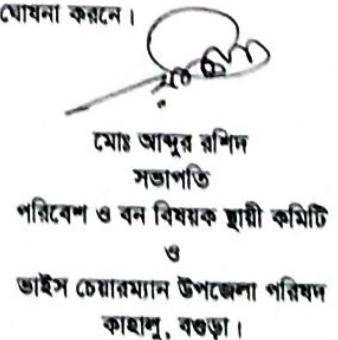 ঘোষনা করনে।
মোঃ আব্দুর রশিদ
সভাপতি
পরিবেশ ও বন বিষয়ক স্থায়ী কমিটি
ও
ভাইস চেয়ারম্যান উপজেলা পরিষদ
কাহালু, বগুড়া।